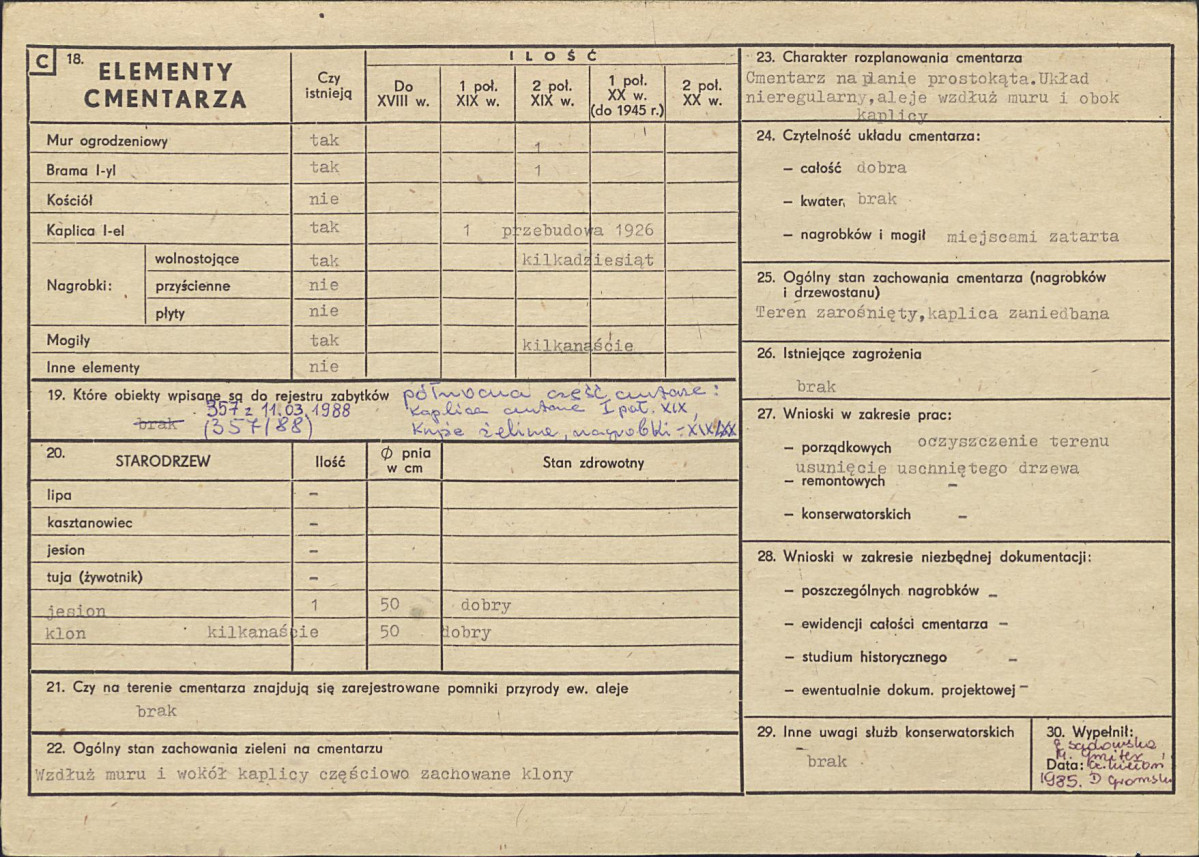 C 18. ELEMENTY CMENTARZA
Czy istnieją
ILOŚĆ
Do XVIII w.
1 poł. XIX w.
2 poł. XIX w.
1 poł. XX w. (do 1945 r.)
2 poł. XX w.
Mur ogrodzeniowy tak 1
Brama I-yl tak 1
Kościół nie
Kaplica I-el tak 1 przebudowa 1926
Nagrobki:
wolnostojące tak kilkadziesiąt
przyścienne nie
płyty nie
Mogiły tak kilkanaście
Inne elementy nie
19. Które obiekty wpisane są do rejestru zabytków północna część cmentarza:
357 z 11.03.1988 kaplica cment. I poł. XIX,
brak (357/88) nagrobki - XIX/XX
20. STARODRZEW Ilość Ø pnia w cm Stan zdrowotny
lipa –
kasztanowiec –
jesion –
tuja (żywotnik) –
jesion 1 50 dobry
klon kilkanaście 50 dobry
21. Czy na terenie cmentarza znajdują się zarejestrowane pomniki przyrody ew. aleje
brak
22. Ogólny stan zachowania zieleni na cmentarzu
Wzdłuż muru i wokół kaplicy częściowo zachowane klony
23. Charakter rozplanowania cmentarza
Cmentarz na planie prostokąta.Układ
nieregularny,aleje wzdłuż muru i obok
kaplicy
24. Czytelność układu cmentarza:
– całość dobra
– kwater, brak
– nagrobków i mogił miejscami zatarta
25. Ogólny stan zachowania cmentarza (nagrobków
i drzewostanu)
Teren zarośnięty,kaplica zaniedbana
26. Istniejące zagrożenia
brak
27. Wnioski w zakresie prac:
– porządkowych oczyszczenie terenu
usunięcie uschniętego drzewa
– remontowych –
– konserwatorskich –
28. Wnioski w zakresie niezbędnej dokumentacji:
– poszczególnych nagrobków –
– ewidencji całości cmentarza –
– studium historycznego –
– ewentualnie dokum. projektowej –
29. Inne uwagi służb konserwatorskich
brak
30. Wypełnił:
Sadowska
Data:
1985. D